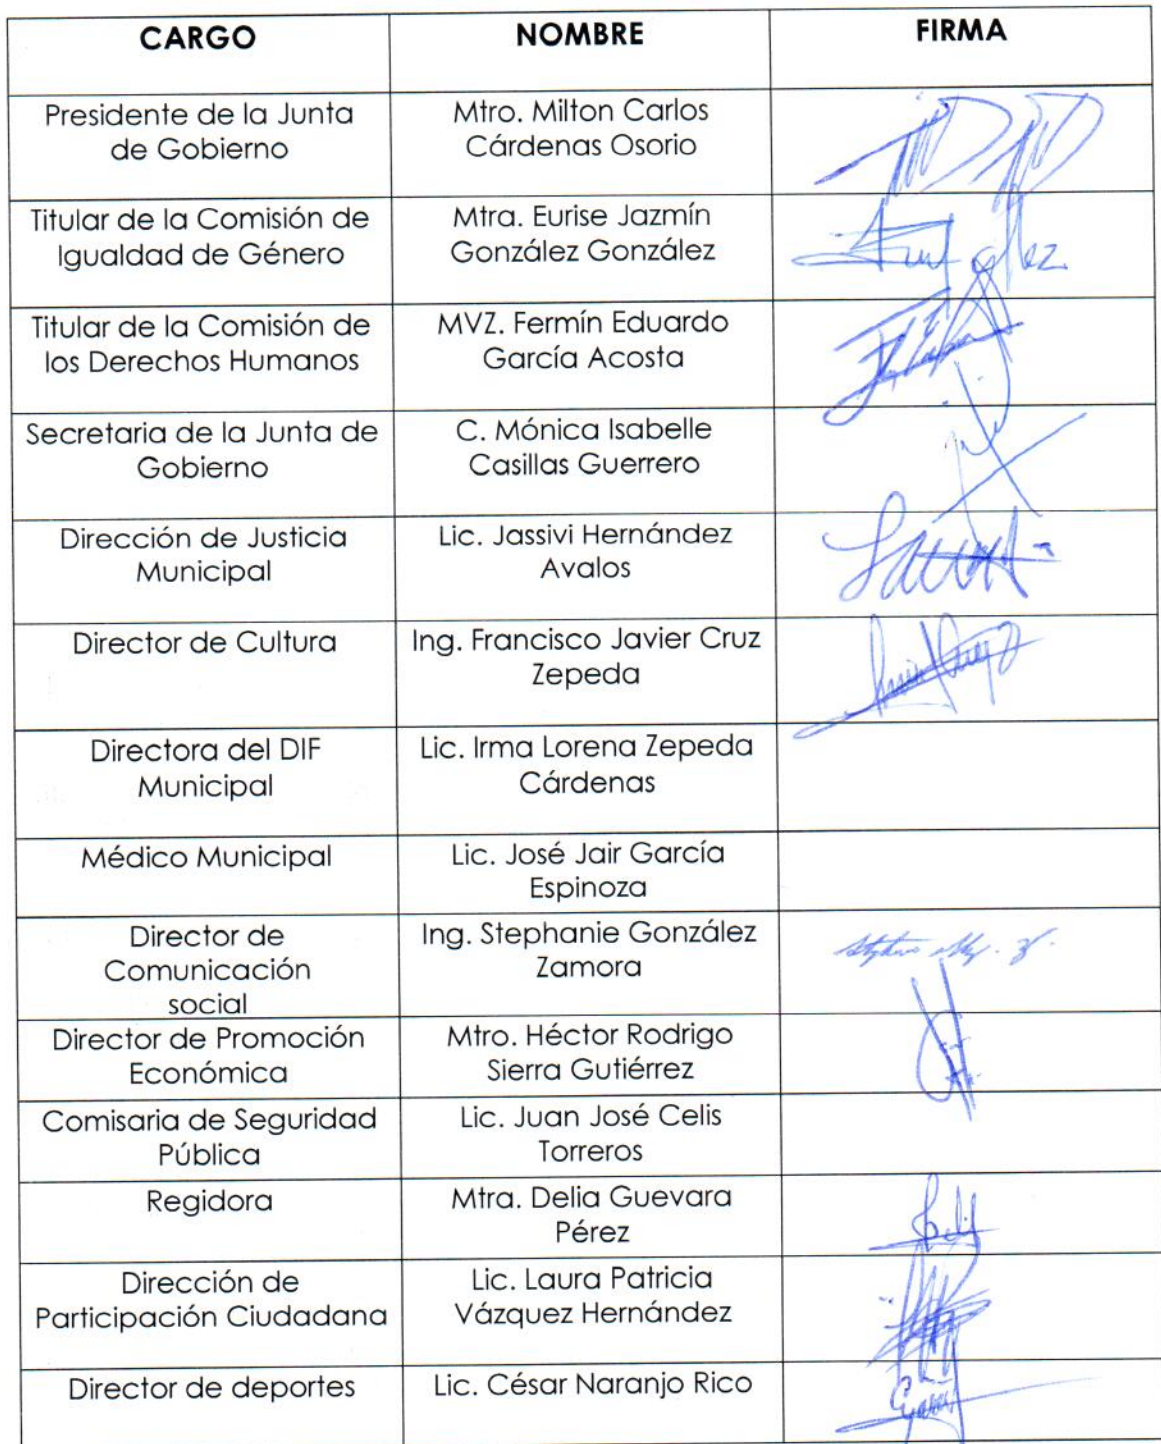 CARGO NOMBRE FIRMA
Presidente de la Junta
de Gobierno
Mtro. Milton Carlos
Cárdenas Osorio
Titular de la Comisión de
Igualdad de Género
Mtra. Eurise Jazmín
González González
Titular de la Comisión de
los Derechos Humanos
MVZ. Fermín Eduardo
García Acosta
Secretaria de la Junta de
Gobierno
C. Mónica Isabelle
Casillas Guerrero
Dirección de Justicia
Municipal
Lic. Jassivi Hernández
Avalos
Director de Cultura
Ing. Francisco Javier Cruz
Zepeda
Directora del DIF
Municipal
Lic. Irma Lorena Zepeda
Cárdenas
Médico Municipal
Lic. José Jair García
Espinoza
Director de
Comunicación
social
Ing. Stephanie González
Zamora
Director de Promoción
Económica
Mtro. Héctor Rodrigo
Sierra Gutiérrez
Comisaria de Seguridad
Pública
Lic. Juan José Celis
Torreros
Regidora
Mtra. Delia Guevara
Pérez
Dirección de
Participación Ciudadana
Lic. Laura Patricia
Vázquez Hernández
Director de deportes
Lic. César Naranjo Rico